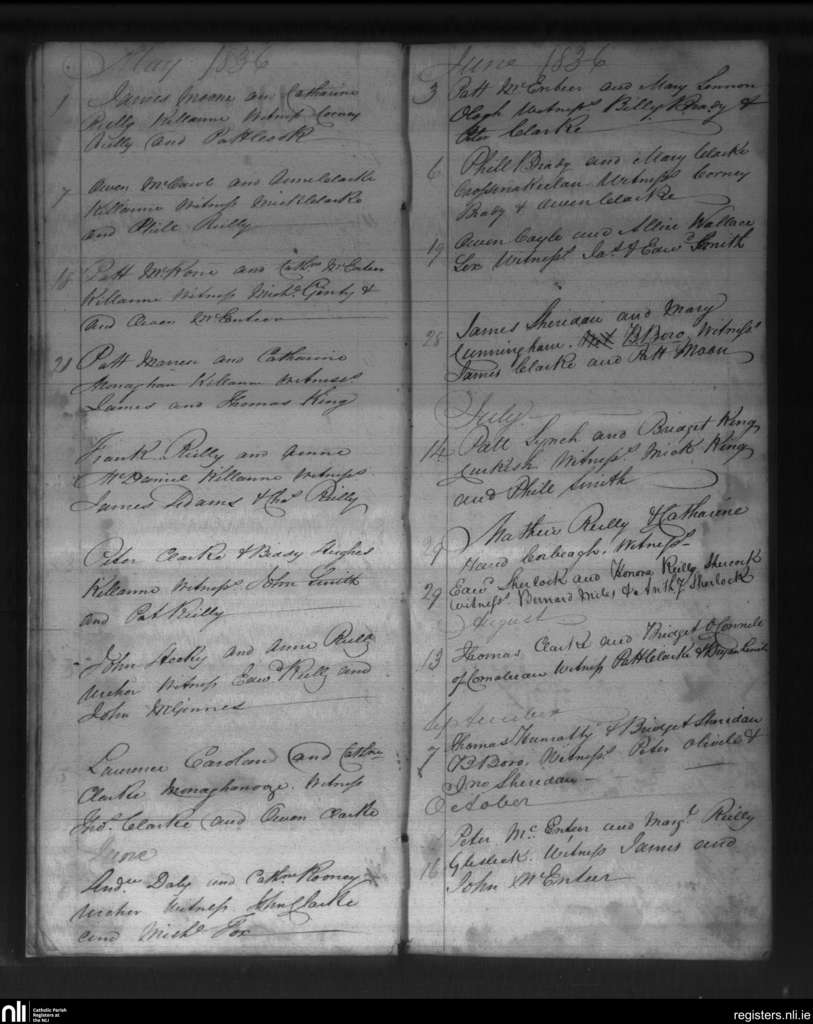 May 1836
1 James Moone and Catharine
Reilly Killanne Witness Corney
Reilly and Patt Cook
7 Owen McCawl and Anne Clarke
Killanne Witness Mick Clarke
and Phill Reilly
18 Patt McKone and Cathne McEnteer
Killanne Witness Michl Ginty &
and Owen McEnteer
21 Patt Marren and Catharine
Monaghan Killanne Witnesses
James and Thomas King
Frank Reilly and Anne
McDaniel Killanne Witness
James Adams & Chas Reilly
Peter Clarke & Biddy Hughes
Killanne Witness John Smith
and Pat Reilly
John and Anne Reilly
Witness Edwd Reilly and
John McGinnes
Lawrence Carolan and Cathne
Clarke Witness
Jno. Clarke and Owen Clarke
June
Andw Daly and Cathne Rooney
Witness John Clarke
and Michl Fox
June 1836
3 Patt McEnteer and Mary Lennon
Witnesss Billy Brady &
Peter Clarke
6 Phill Brady and Mary Clarke
Crossnakeelan Witness Corney
Brady & Owen Clarke
19 Owen Coyle and Allice Wallace
Witnesss Jas & Edwd Smith
28 James Sheridan and Mary
Cunningham. BBoro Witnesss
James Clarke and Patt Moon
July
14 Patt Lynch and Bridget King
Witnesss Mick King
and Phill Smith
29 Mathew Reilly & Catharine
Hand Corleagh. Witness
29 Edwd Sherlock and Honora Reilly Shercock
Witnesss Bernard Miles & Anthy Sherlock
August
13 Thomas Clarke and Bridget OConnell
of Witness Patt Clarke & Bryan Smith
September
7 Thomas Hanratty & Bridget Sheridan
BBoro. Witnesss Peter &
Jno Sheridan
October
16 Peter McEnteer and Margt Reilly
Witness James and
John McEnteer
nli
Catholic Parish
Registers at
the NLI
registers.nli.ie